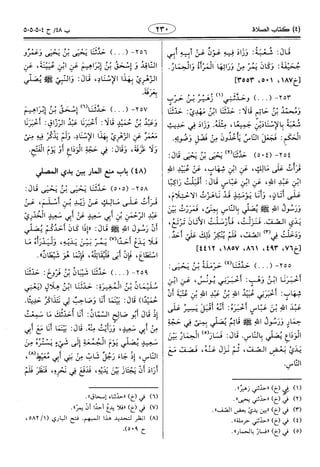 (٤) كتاب الصلاة
٢٣٠
ب ٤٨/ ح ٥٠٤-٥٠٥
قال: شعبة: وزاد فيه عون عن أبيه أبي
جحيفة: وكان يمر من ورائها المرأة والحمار.
[ح١٨٧، ٥٠١، ٣٥٥٣]
٢٥٣- (...) وحدثني(١) زهير بن حرب
ومحمد بن حاتم قالا: حدثنا ابن مهدي: حدثنا
شعبة بالإسنادين جميعا، مثله. وزاد في حديث
الحكم: فجعل الناس يأخذون من فضل وضوئه.
٢٥٤- (٥٠٤) حدثنا(٢) يحيى بن يحيى قال:
قرأت على مالك، عن ابن شهاب، عن عبيد الله
ابن عبد الله، عن ابن عباس قال: أقبلت راكبا
على أتان، وأنا يومئذ قد ناهزت الاحتلام،
ورسول الله ﷺ يصلي بالناس بمنى، فمررت بين
يدي الصف، فنزلت، فأرسلت الأتان ترتع،
ودخلت في(٣) الصف، فلم ينكر ذلك علي أحد.
[ح٧٦، ٤٩٣، ٨٦١، ١٨٥٧، ٤٤١٢]
٢٥٥- (...) حدثنا(٤) حرملة بن يحيى:
أخبرنا ابن وهب: أخبرني يونس، عن ابن
شهاب: أخبرني عبيد الله بن عبد الله بن عتبة أن
عبد الله بن عباس أخبره: أنه أقبل يسير على
حمار ورسول الله ﷺ قائم يصلي بمنى في حجة
الوداع يصلي بالناس. قال: فسار(٥) الحمار بين
يدي بعض الصف، ثم نزل عنه، فصف مع
الناس.
(١) في (خ) «حدثني زهير».
(٢) في (خ) «حدثني يحيى».
(٣) في (خ) «بين يدي بعض الصف».
(٤) في (خ) «حدثني حرملة».
(٥) في (خ) «فسار بالحمار».
٢٥٦- (...) حدثنا يحيى بن يحيى وعمرو
الناقد وإسحق بن إبراهيم عن ابن عيينة، عن
الزهري بهذا الإسناد، قال: والنبي ﷺ يصلي
بعرفة.
٢٥٧- (...) حدثنا(٦) إسحق بن إبراهيم
وعبد بن حميد قالا: أخبرنا عبد الرزاق: أخبرنا
معمر عن الزهري بهذا الإسناد، ولم يذكر فيه منى
ولا عرفة، وقال: في حجة الوداع أو يوم الفتح.
(٤٨) باب منع المار بين يدي المصلي
٢٥٨- (٥٠٥) حدثنا يحيى بن يحيى قال:
قرأت على مالك عن زيد بن أسلم، عن
عبد الرحمن بن أبي سعيد عن أبي سعيد الخدري
أن رسول الله ﷺ قال: «إذا كان أحدكم يصلي
فلا يدع أحدا(٧) يمر بين يديه، وليدرأه ما
استطاع، فإن أبى فليقاتله، فإنما هو شيطان».
٢٥٩- (...) حدثنا شيبان بن فروخ: حدثنا
سليمان بن المغيرة: حدثنا ابن هلال (يعني
حميدا) قال: بينما أنا وصاحب لي نتذاكر حديثا،
إذ قال أبو صالح السمان: أنا أحدثك ما سمعت
من أبي سعيد، ورأيت منه. قال: بينما أنا مع أبي
سعيد يصلي يوم الجمعة إلى شيء يستره من
الناس، إذ جاء رجل شاب من بني أبي معيط(٨)،
أراد أن يجتاز بين يديه، فدفع في نحره، فنظر فلم
(٦) في (خ) «حدثناه إسحاق».
(٧) في (خ) «فلا يدع أحدا أن يمر».
(٨) انظر لتحديد هذا المبهم، فتح الباري (٥٨٢/١،
ح ٥٠٩).